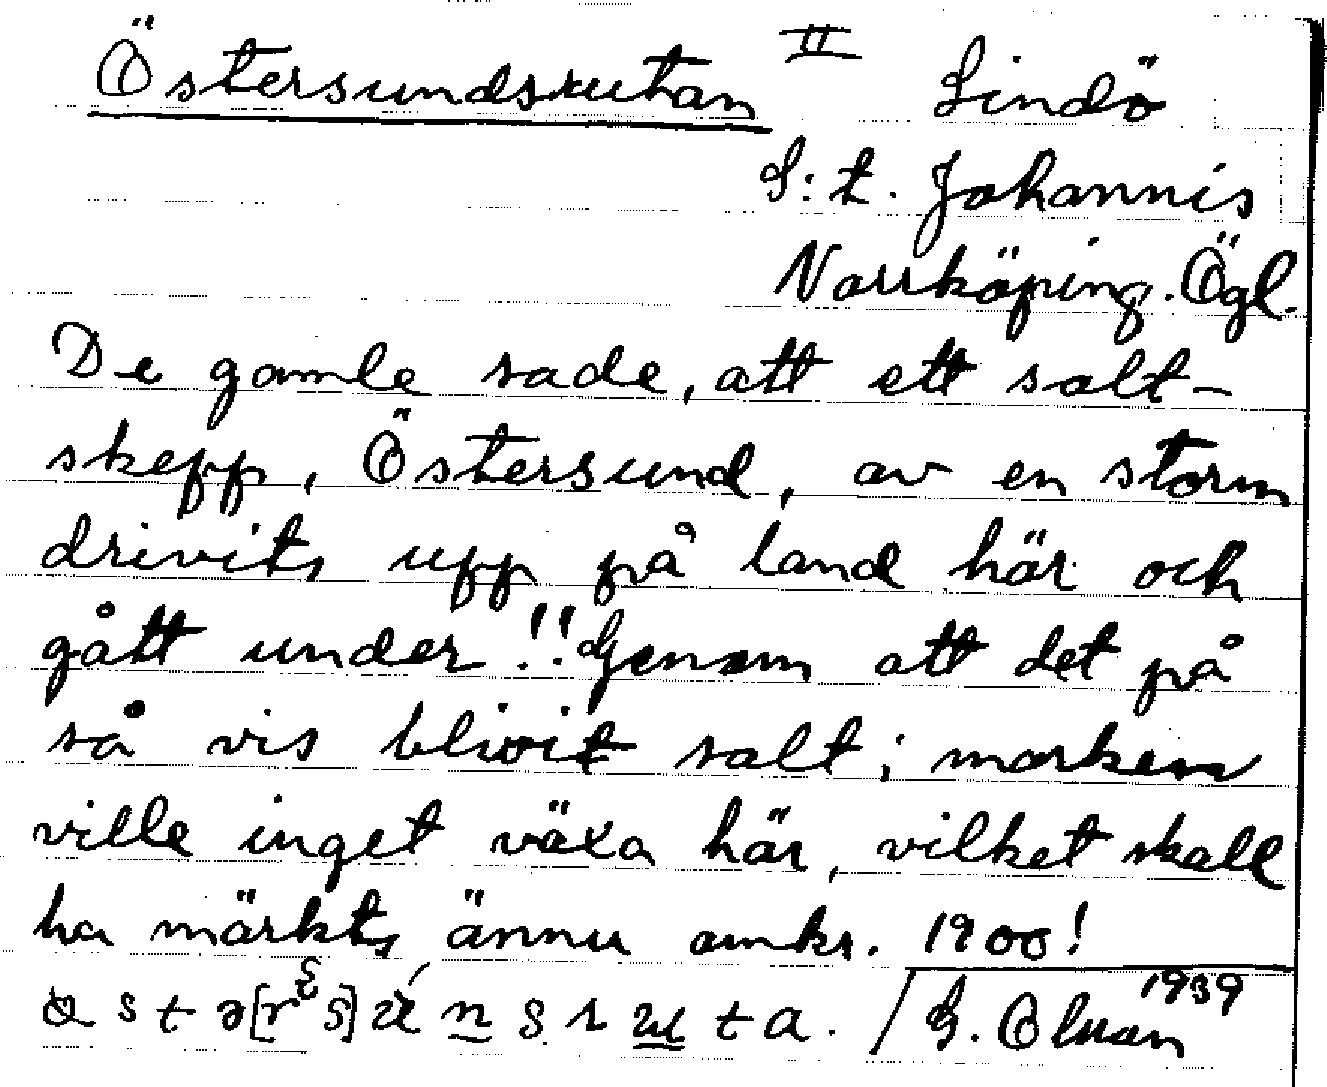 Östersundsrutan II Lindö
S:t. Johannis
Norrköping. Ögl.
De gamle sade, att ett salt-
skepp, Östersund, av en storm
drivits upp på land här och
gått under!! Genom att det på
så vis blivit salt i marken
ville inget växa här, vilket skall
ha märkts ännu omkr. 1900!
/ G. 1939